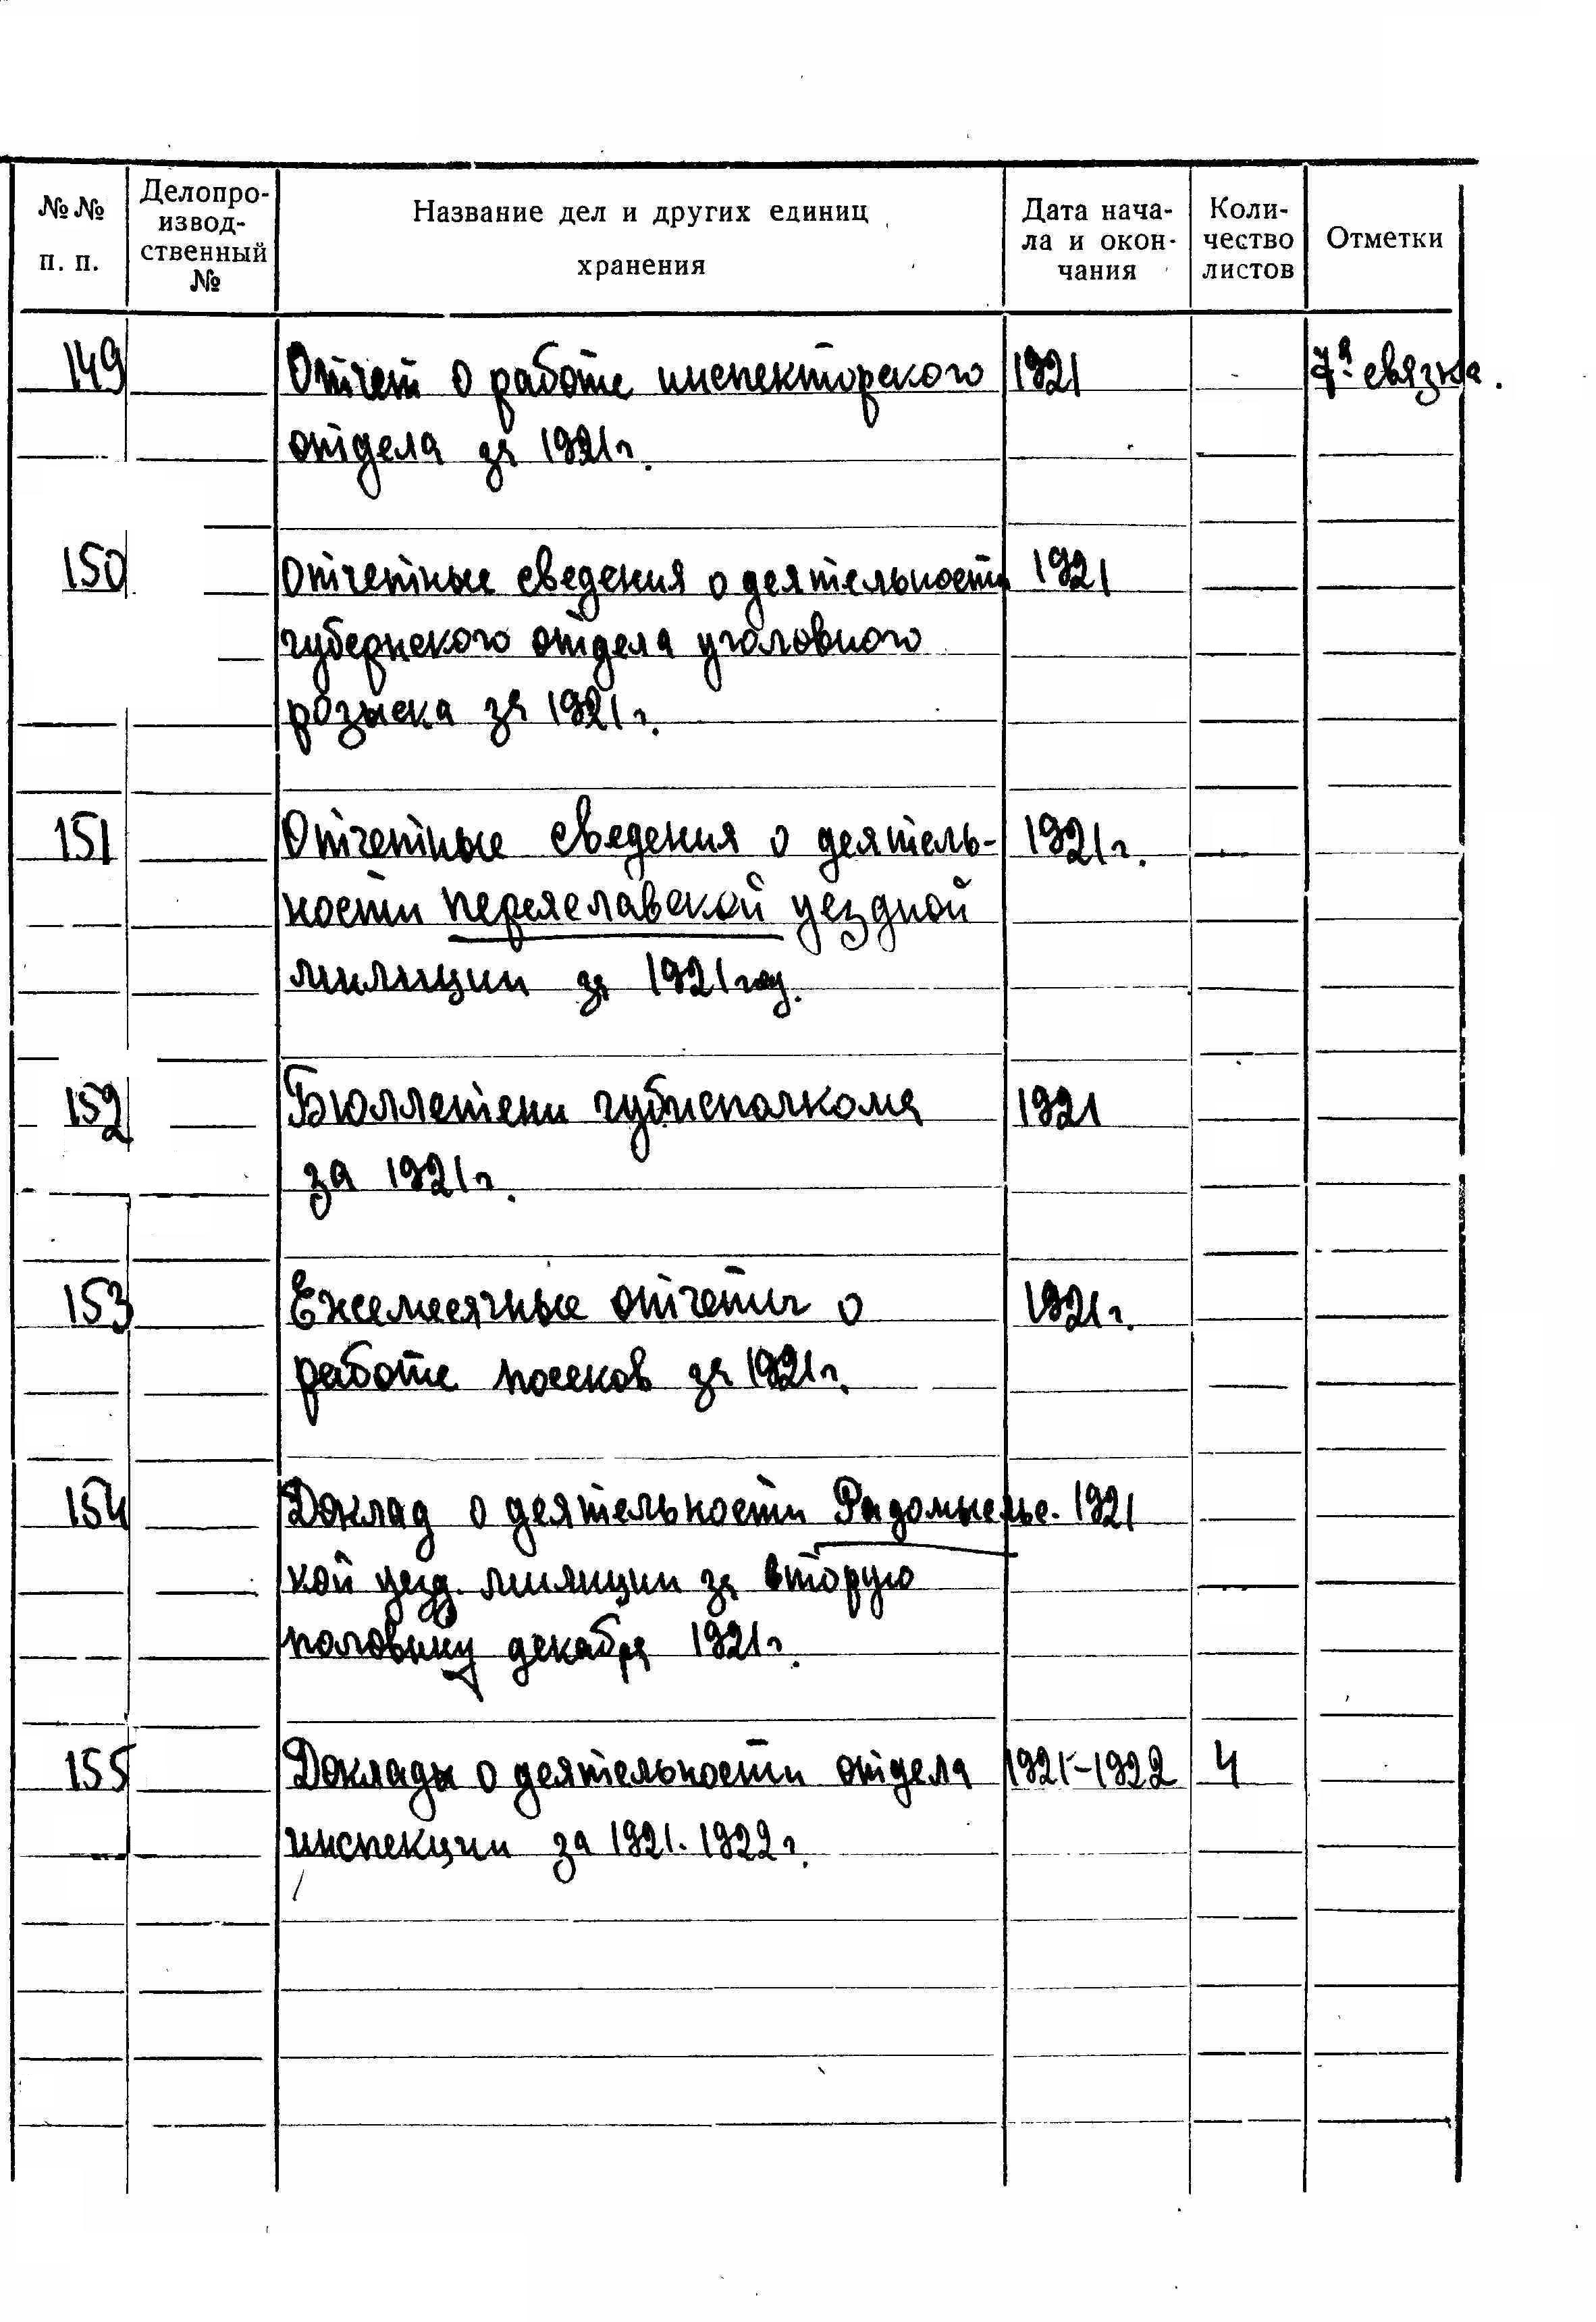 №№ п. п.
Делопро-
извод-
ственный
№
Название дел и других единиц
хранения
Дата нача-
ла и окон-
чания
Коли-
чество
листов
Отметки
149 Отчет о работе инспекторского 1921 7я связка.
отдела за 1921г.
150 Отчетные сведения о деятельности 1921
губернского отдела уголовного
розыска за 1921г.
151 Отчетные сведения о деятель- 1921г.
ности переяславской уездной
милиции за 1921год.
152 Бюллетени губисполкома 1921
за 1921г.
153 Ежемесячные отчеты о 1921г.
работе посеков за 1921г.
154 Доклад о деятельности Радомысльс- 1921
кой уезд. милиции за вторую
половину декабря 1921г.
155 Доклады о деятельности отдела 1921-1922 4
инспекции за 1921-1922г.